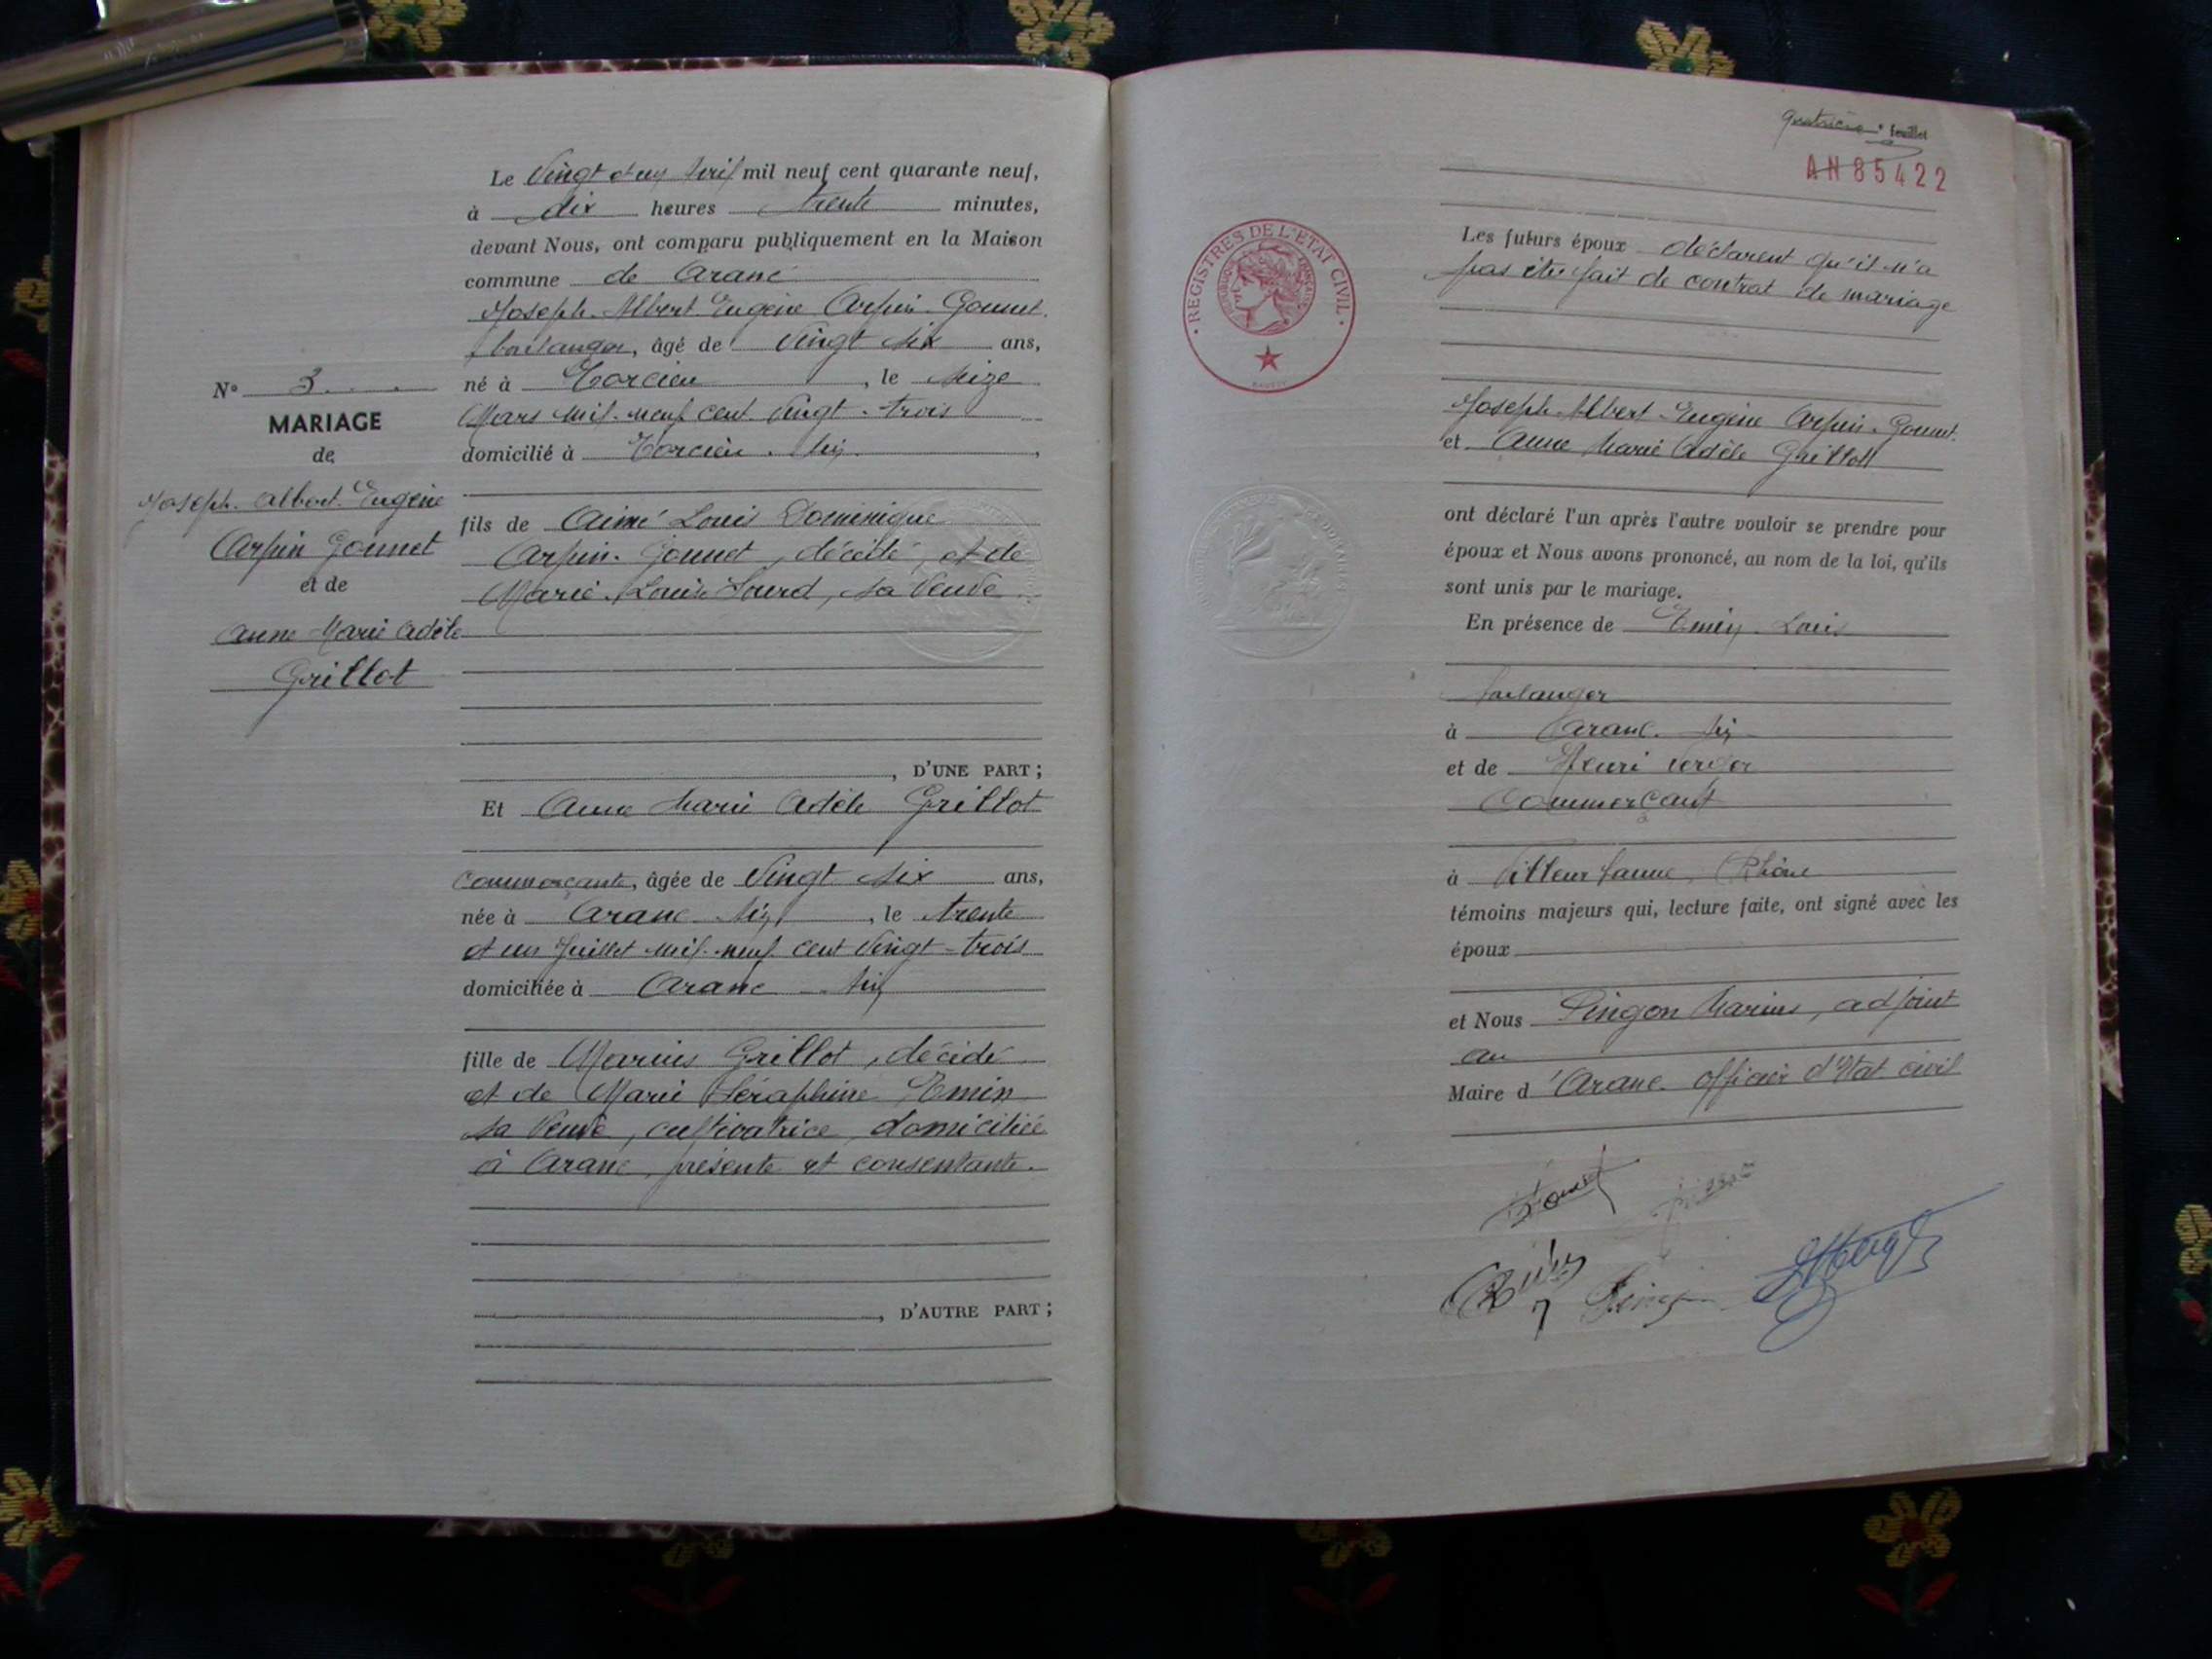 Le Vingt et un Avril mil neuf cent quarante neuf,
à dix heures trente minutes,
devant Nous, ont comparu publiquement en la Maison
commune de Aranc
Joseph. Albert Eugène Arpin. Gonnet.
boulanger, âgé de Vingt six ans,
né à Torcieu, le seize
Mars mil. neuf cent vingt. trois
domicilié à Torcieu. Ain.
fils de Aimé Louis Dominique
Arpin. Gonnet, décédé, et de
Marie. Louise Sourd, sa Veuve
N° 3
MARIAGE
de
Joseph. Albert. Eugène
Arpin Gonnet
et de
Anne Marie Adèle
Grillot
, D'UNE PART ;
Et Anne Marie Adèle Grillot
Commerçante, âgée de Vingt six ans,
née à Aranc Ain, le trente
et un Juillet mil. neuf cent Vingt-trois
domiciliée à Aranc Ain
fille de Marius Grillot, décédé
et de Marie Séraphine Emin
sa Veuve, cultivatrice domiciliée
à Aranc, présente et consentante.
, D'AUTRE PART ;
quatrième e feuillet
AN85422
REGISTRES DE L'ETAT CIVIL
Les futurs époux déclarent qu'il n'a
pas été fait de contrat de mariage
Joseph. Albert. Eugène Arpin. Gonnet.
et Anne Marie Adèle Grillot
ont déclaré l'un après l'autre vouloir se prendre pour
époux et Nous avons prononcé, au nom de la loi, qu'ils
sont unis par le mariage.
En présence de Emin. Louis
boulanger
à Aranc. Ain
et de Henri
Commerçant
à Villeurbanne. Rhône
témoins majeurs qui, lecture faite, ont signé avec les
époux
et Nous Pingon Marius, adjoint
au
Maire d'Aranc. officier d'Etat civil
Gonnet